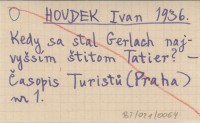 HOUDEK Ivan 1936.
Kedy sa stal Gerlach naj-
vyšším štítom Tatier? -
Časopis Turistů (Praha)
nr 1.